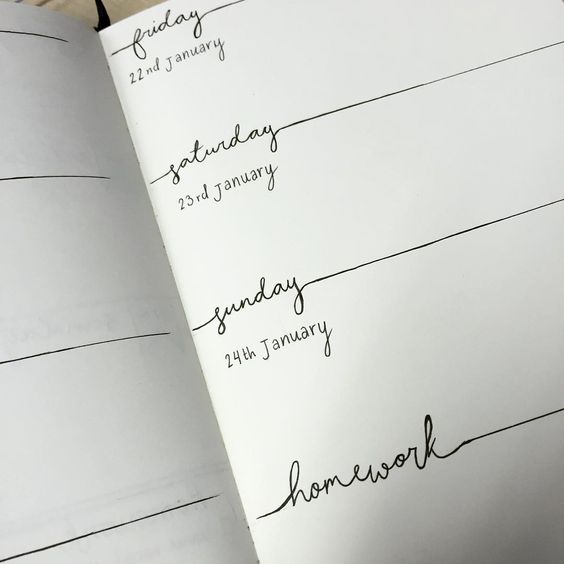 friday
22nd January
saturday
23rd January
sunday
24th January
homework